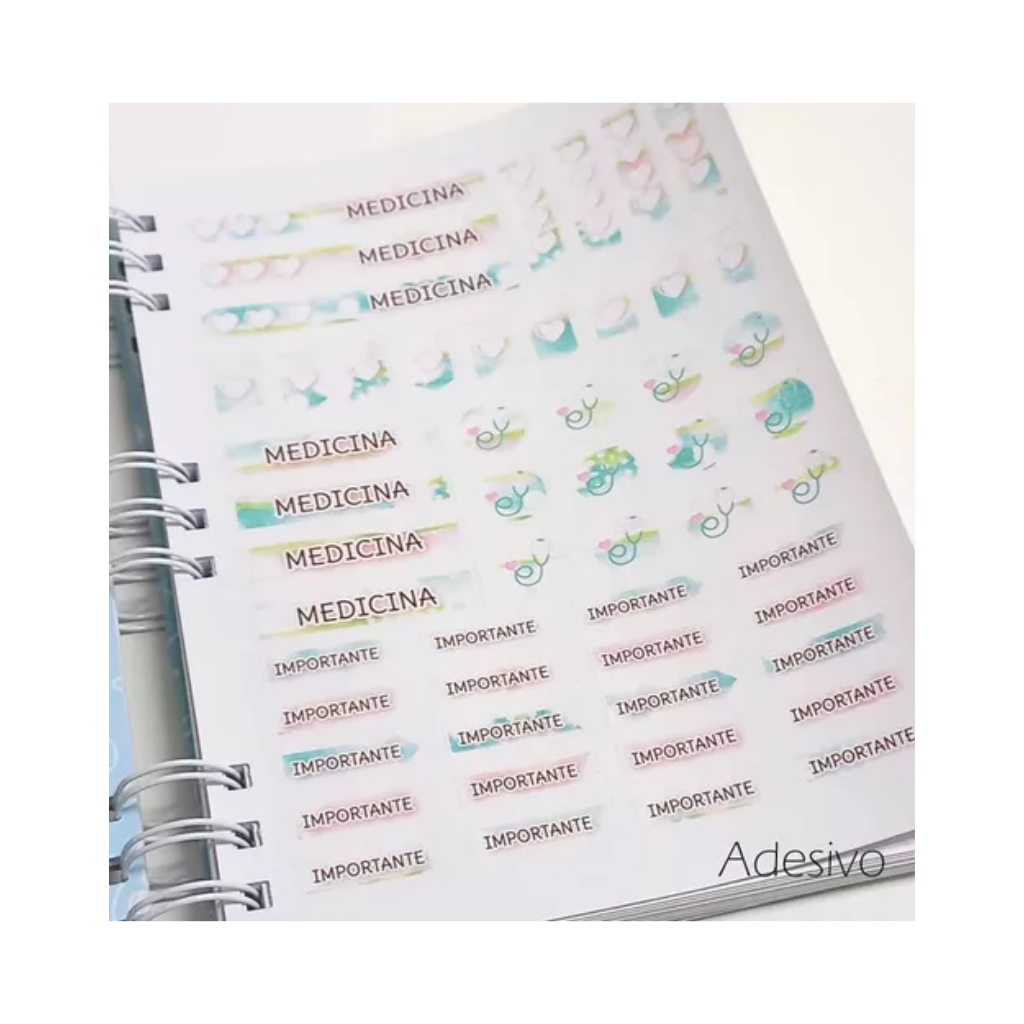 MEDICINA
MEDICINA
MEDICINA
MEDICINA
MEDICINA
MEDICINA
MEDICINA
IMPORTANTE IMPORTANTE IMPORTANTE IMPORTANTE
IMPORTANTE IMPORTANTE IMPORTANTE IMPORTANTE
IMPORTANTE IMPORTANTE IMPORTANTE IMPORTANTE
IMPORTANTE IMPORTANTE IMPORTANTE IMPORTANTE
IMPORTANTE IMPORTANTE IMPORTANTE IMPORTANTE
Adesivo